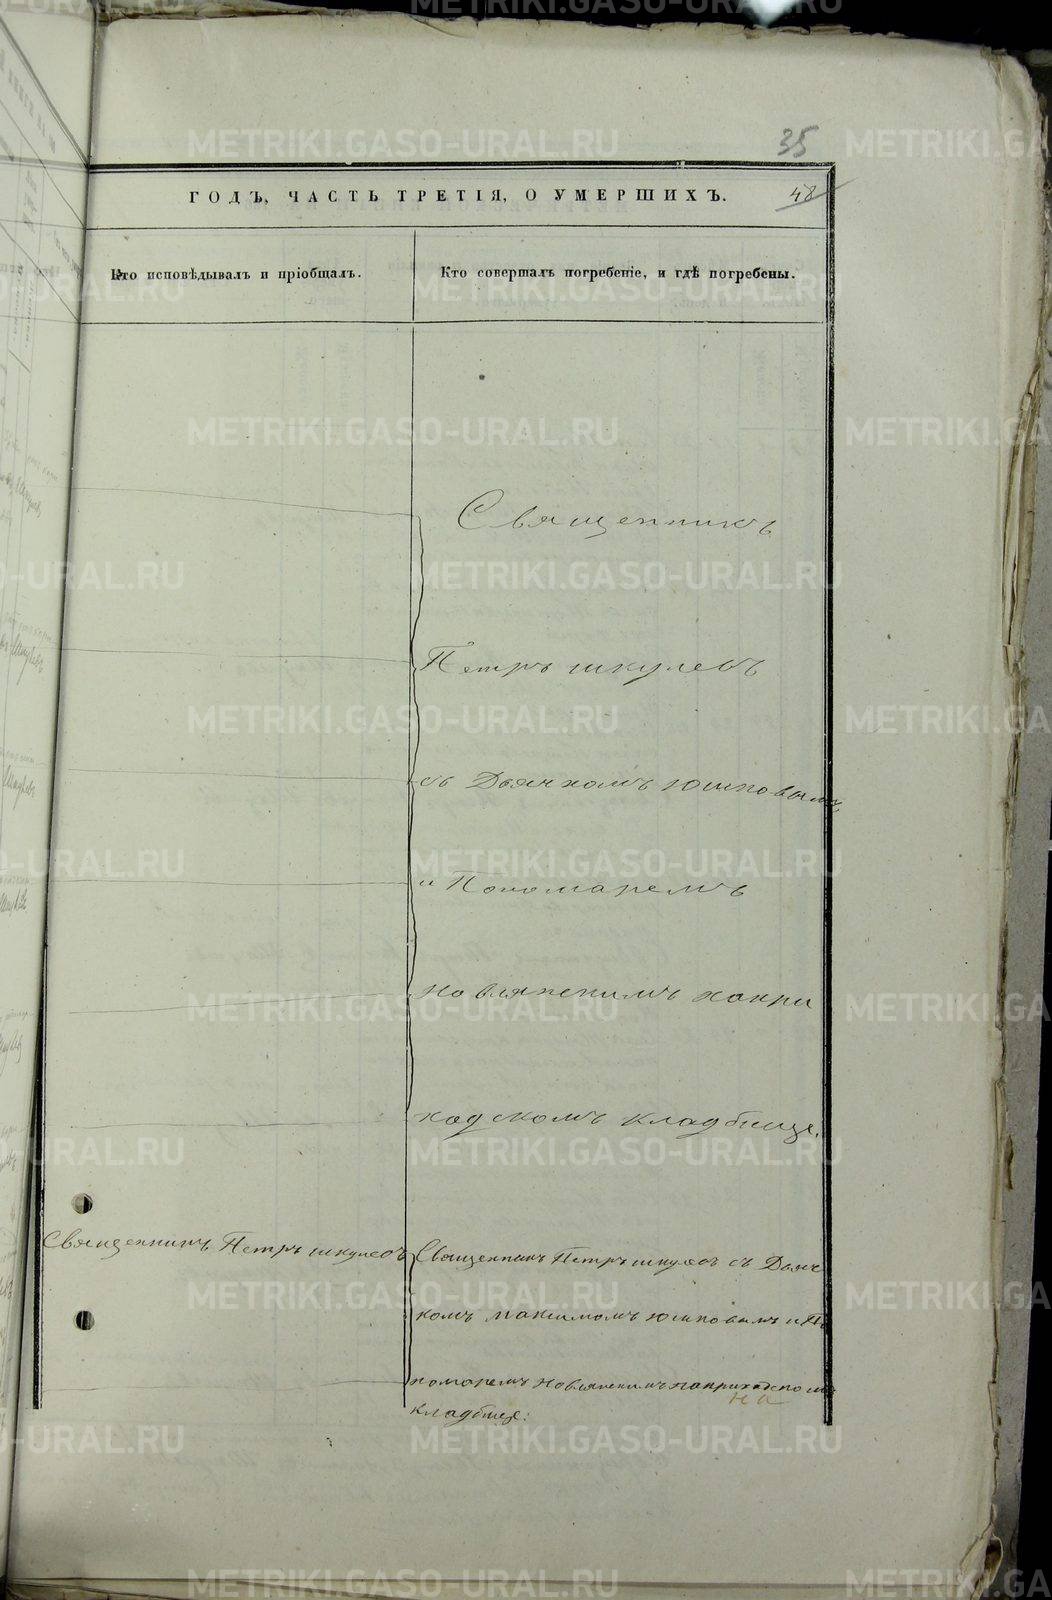 35
ГОДЪ, ЧАСТЬ ТРЕТІЯ, О УМЕРШИХЪ.
48
Кто исповѣдывалъ и пріобщалъ.
Кто совершалъ погребеніе, и гдѣ погребены.
Священникъ
Петръ шкулевъ
съ Дьячкомъ Юшковымъ
и Пономаремъ
на при
ходскомъ кладбище.
Священникъ Петръ шкулевъ
Священникъ Петръ шкулевъ съ Дьяч
комъ максимомъ Юшковымъ и По
номаремъ на приходскомъ
на
кладбище.
METRIKI.GASO-URAL.RU